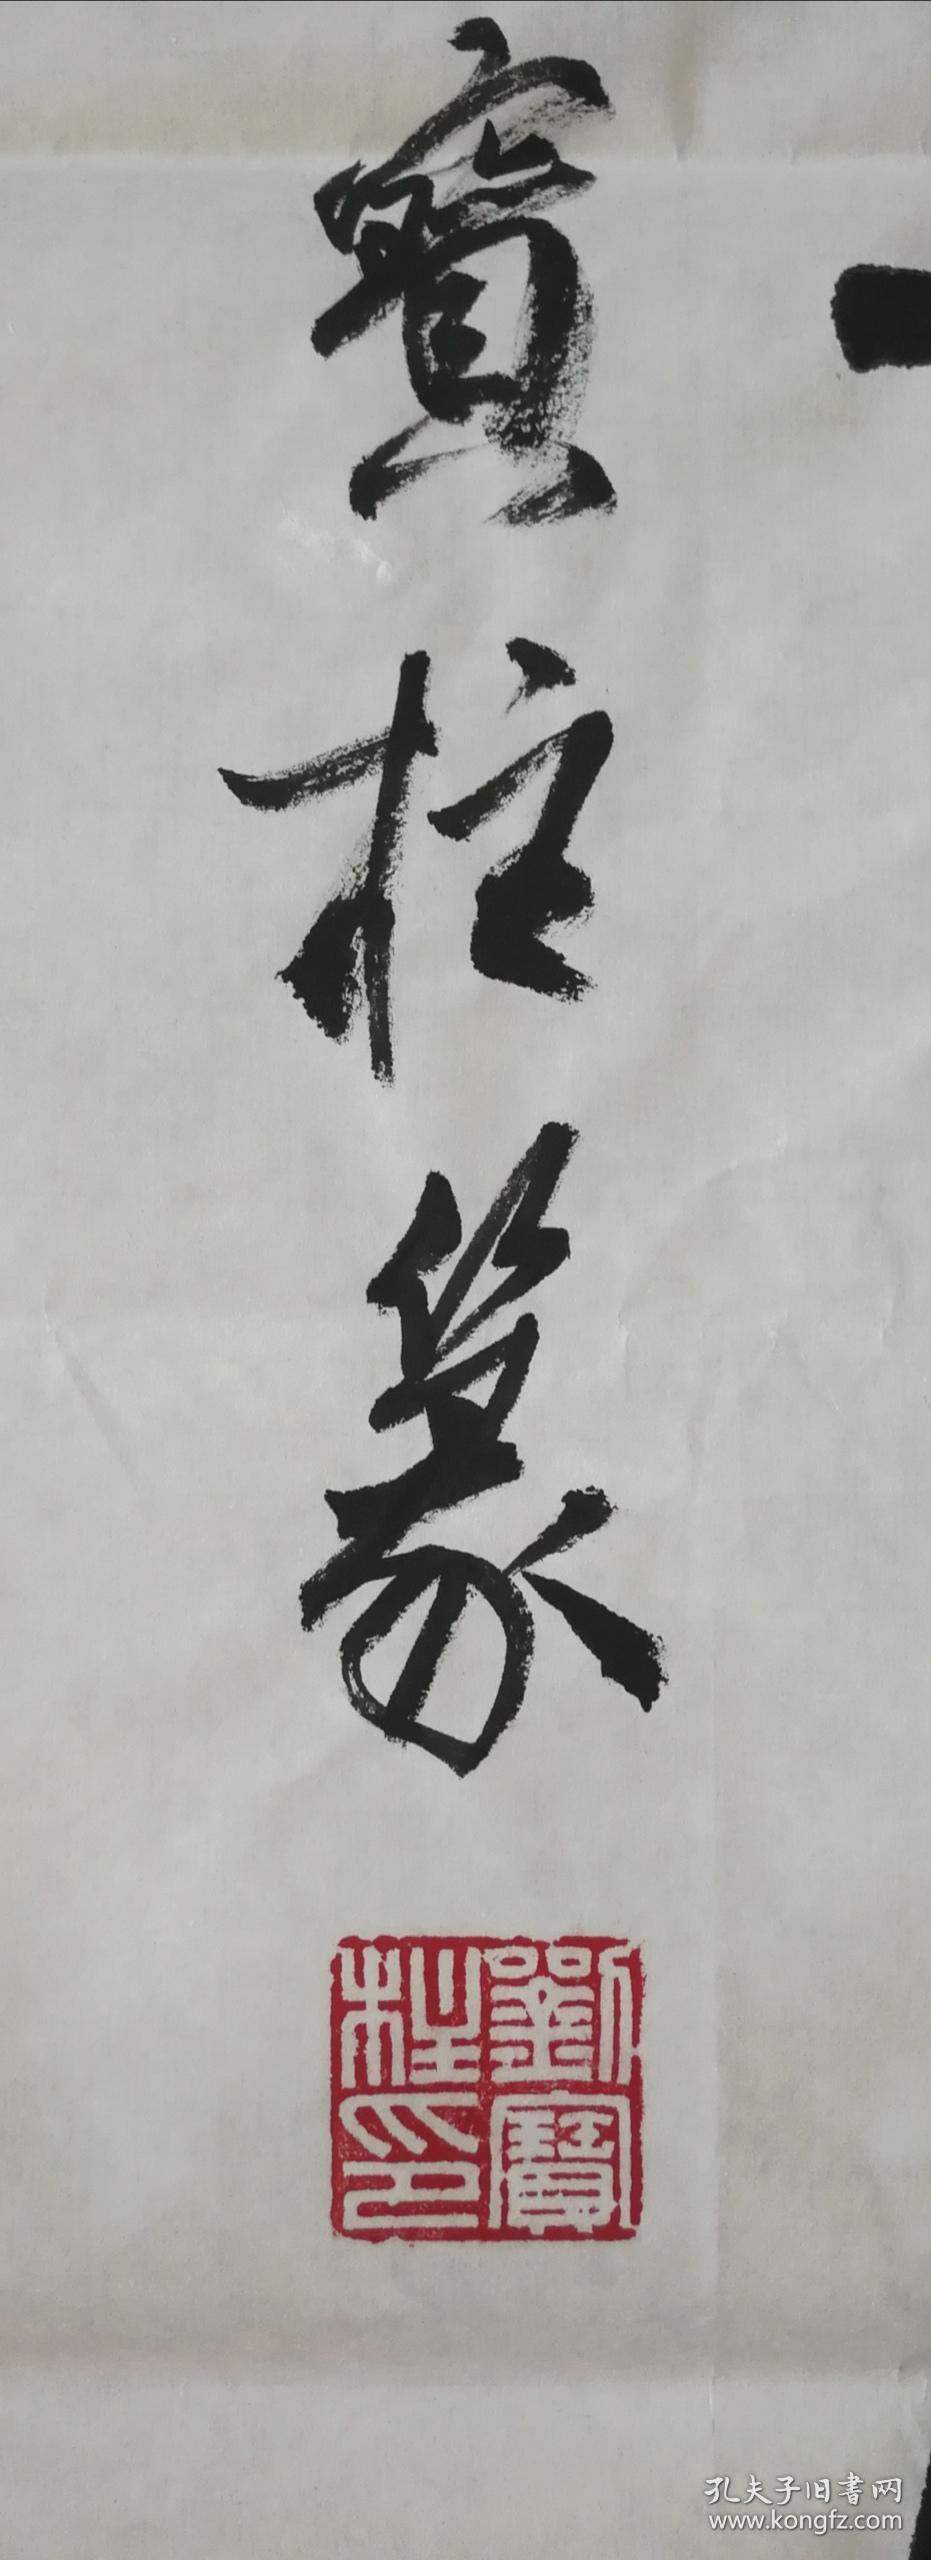 寶柱篆
劉寶柱印
孔夫子旧書网
www.kongfz.com